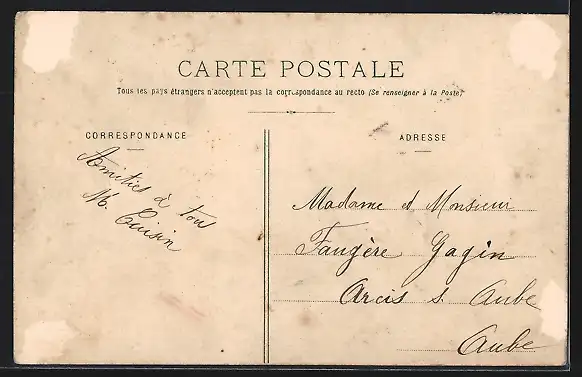 CARTE POSTALE
Tous les pays étrangers n'acceptent pas la correspondance au recto (Se renseigner à la Poste)
CORRESPONDANCE
Amitiés à tous
M. Cuisin
ADRESSE
Madame et Monsieur
Faugère Gagin
Arcis s. Aube
Aube